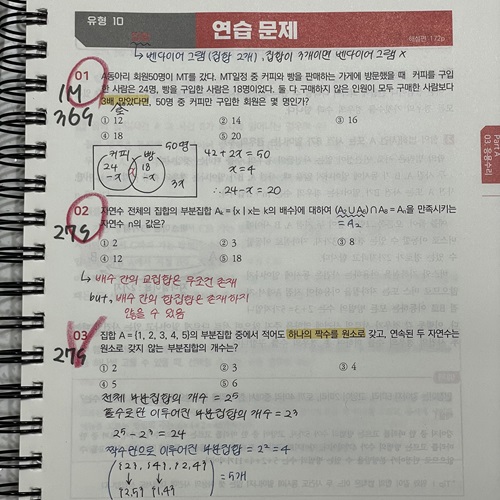 유형 10
연습 문제
해설편 172p
↳ 벤다이어그램(집합 2개), 집합이 3개이면 벤다이어그램 X
01
1M
36g
A동아리 회원50명이 MT를 갔다. MT일정 중 커피와 빵을 판매하는 가게에 방문했을 때 커피를 구입
한 사람은 24명, 빵을 구입한 사람은 18명이었다. 둘 다 구매하지 않은 인원이 모두 구매한 사람보다
3배 많았다면, 50명 중 커피만 구입한 회원은 몇 명인가?
① 12 ② 14 ③ 16
④ 18 ⑤ 20
50명
커피 빵
24 -x x 18 -x
3x
42 + 2x = 50
x = 4
∴ 24-x = 20
02
27g
자연수 전체의 집합의 부분집합 Aₖ = {x | x는 k의 배수}에 대하여 (A₂ ∪ A₄) ∩ A₈ = Aₙ을 만족시키는
자연수 n의 값은?
= A₂
① 2 ② 3 ③ 8
④ 12 ⑤ 18
↳ 배수 간의 교집합은 무조건 존재
but, 배수 간의 합집합은 존재하지
않을 수 있음
03
27g
집합 A = {1, 2, 3, 4, 5}의 부분집합 중에서 적어도 하나의 짝수를 원소로 갖고, 연속된 두 자연수는
원소로 갖지 않는 부분집합의 개수는?
① 2 ② 3 ③ 4
④ 5 ⑤ 6
전체 부분집합의 개수 = 2⁵
홀수로만 이루어진 부분집합의 개수 = 2³
2⁵ - 2³ = 24
짝수만으로 이루어진 부분집합 = 2² = 4
{2}, {4}, {2,4}
↓ ↓
{2,5} {1,4}
= 5개
Part A
03. 응용수리